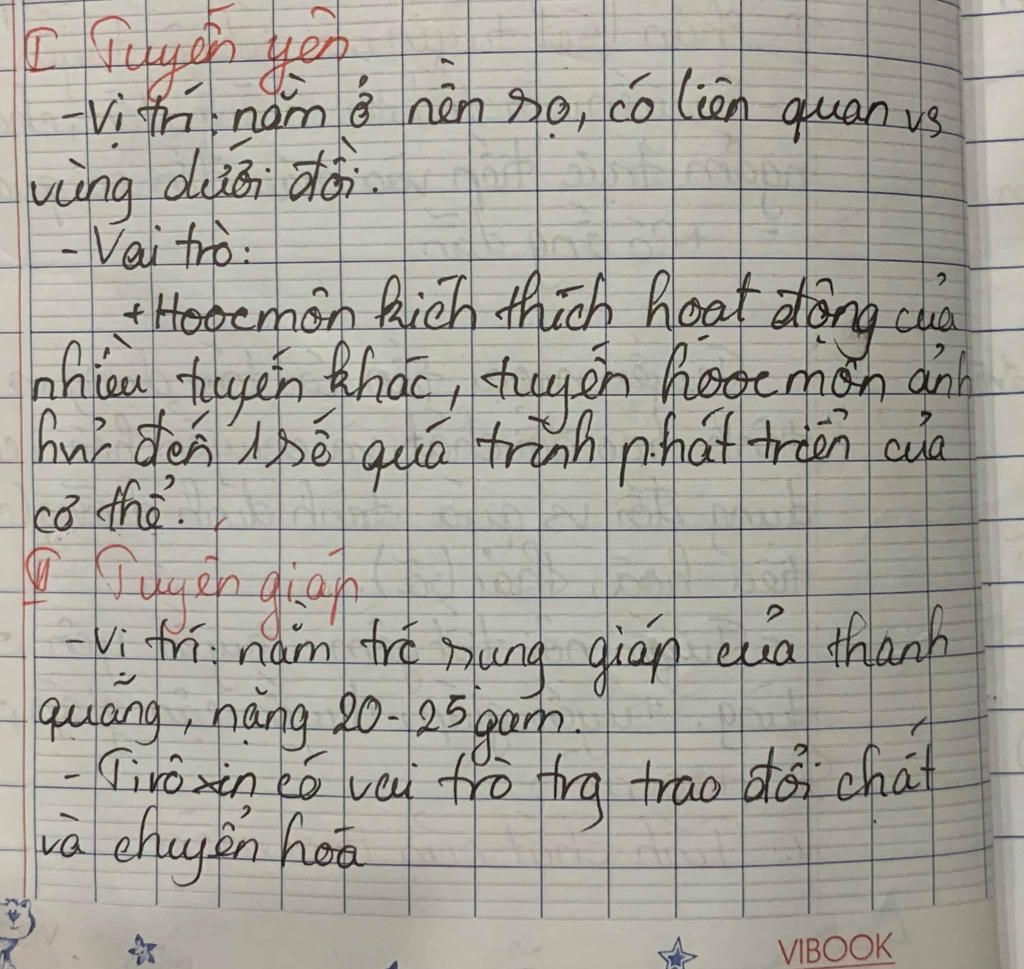 I Tuyến yên
- Vị trí: nằm ở nền sọ, có liên quan vs
vùng dưới đồi.
- Vai trò:
+ Hoocmôn kích thích hoạt động của
nhiều tuyến khác, tuyến hoocmôn ảnh
hư² đến 1 số quá trình phát triển của
cơ thể.
II Tuyến giáp
- Vị trí: nằm trc sụng giáp của thanh
quãng, nặng 20-25 gam.
- Tirôxin có vai trò trg trao đổi chất
và chuyển hoá
VIBOOK